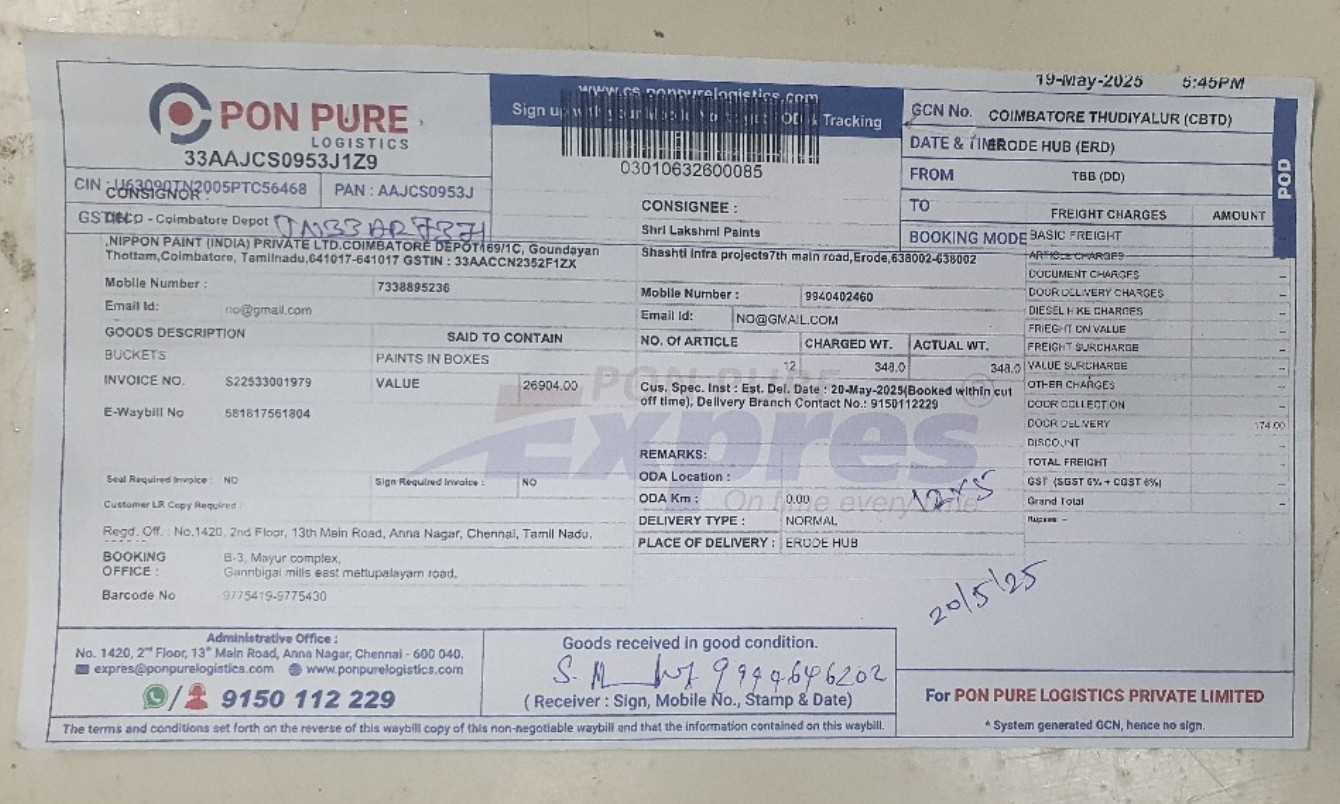 19-May-2025 5:45PM
PON PURE
LOGISTICS
33AAJCS0953J1Z9
www.cs.ponpurelogistics.com
Sign up with your Tracking
03010632600085
GCN No. COIMBATORE THUDIYALUR (CBTD)
DATE & TIME ERODE HUB (ERD)
FROM TBB (DD)
TO
BOOKING MODE
POD
CIN : U63090TN2005PTC56468
PAN : AAJCS0953J
CONSIGNOR :
- Coimbatore Depot
,NIPPON PAINT (INDIA) PRIVATE LTD.COIMBATORE DEPOT169/1C, Goundayan
Thottam,Coimbatore, Tamilnadu,641017-641017 GSTIN : 33AACCN2352F1ZX
Mobile Number : 7338895236
Email Id: no@gmail.com
GOODS DESCRIPTION SAID TO CONTAIN
BUCKETS PAINTS IN BOXES
INVOICE NO. S22533001979 VALUE 26904.00
E-Waybill No 581817561804
Seal Required Invoice : NO Sign Required Invoice : NO
Customer LR Copy Required :
Regd. Off. : No.1420, 2nd Floor, 13th Main Road, Anna Nagar, Chennai, Tamil Nadu,
BOOKING OFFICE : B-3, Mayur complex,
Gannbigai mills east mettupalayam road,
Barcode No 9775419-9775430
CONSIGNEE :
Shri Lakshmi Paints
Shashti Infra projects7th main road,Erode,638002-638002
Mobile Number : 9940402460
Email Id: NO@GMAIL.COM
NO. Of ARTICLE CHARGED WT. ACTUAL WT.
12 348.0 348.0
Cus. Spec. Inst : Est. Del. Date : 20-May-2025(Booked within cut
off time), Delivery Branch Contact No.: 9150112229
PON PURE
Expres
On time every time
REMARKS:
ODA Location :
ODA Km : 0.00
DELIVERY TYPE : NORMAL
PLACE OF DELIVERY : ERODE HUB
FREIGHT CHARGES AMOUNT
BASIC FREIGHT
ARTICLE CHARGES –
DOCUMENT CHARGES –
DOOR DELIVERY CHARGES –
DIESEL HIKE CHARGES –
FRIEGHT ON VALUE –
FREIGHT SURCHARGE –
VALUE SURCHARGE –
OTHER CHARGES –
DOOR COLLECTION –
DOOR DELIVERY 174.00
DISCOUNT –
TOTAL FREIGHT –
GST (SGST 6% + CGST 6%) –
Grand Total –
Rupees –
20/5/25
Administrative Office :
No. 1420, 2nd Floor, 13th Main Road, Anna Nagar, Chennai - 600 040.
expres@ponpurelogistics.com www.ponpurelogistics.com
/ 9150 112 229
Goods received in good condition.
9994646202
( Receiver : Sign, Mobile No., Stamp & Date)
For PON PURE LOGISTICS PRIVATE LIMITED
* System generated GCN, hence no sign.
The terms and conditions set forth on the reverse of this waybill copy of this non-negotiable waybill and that the information contained on this waybill.